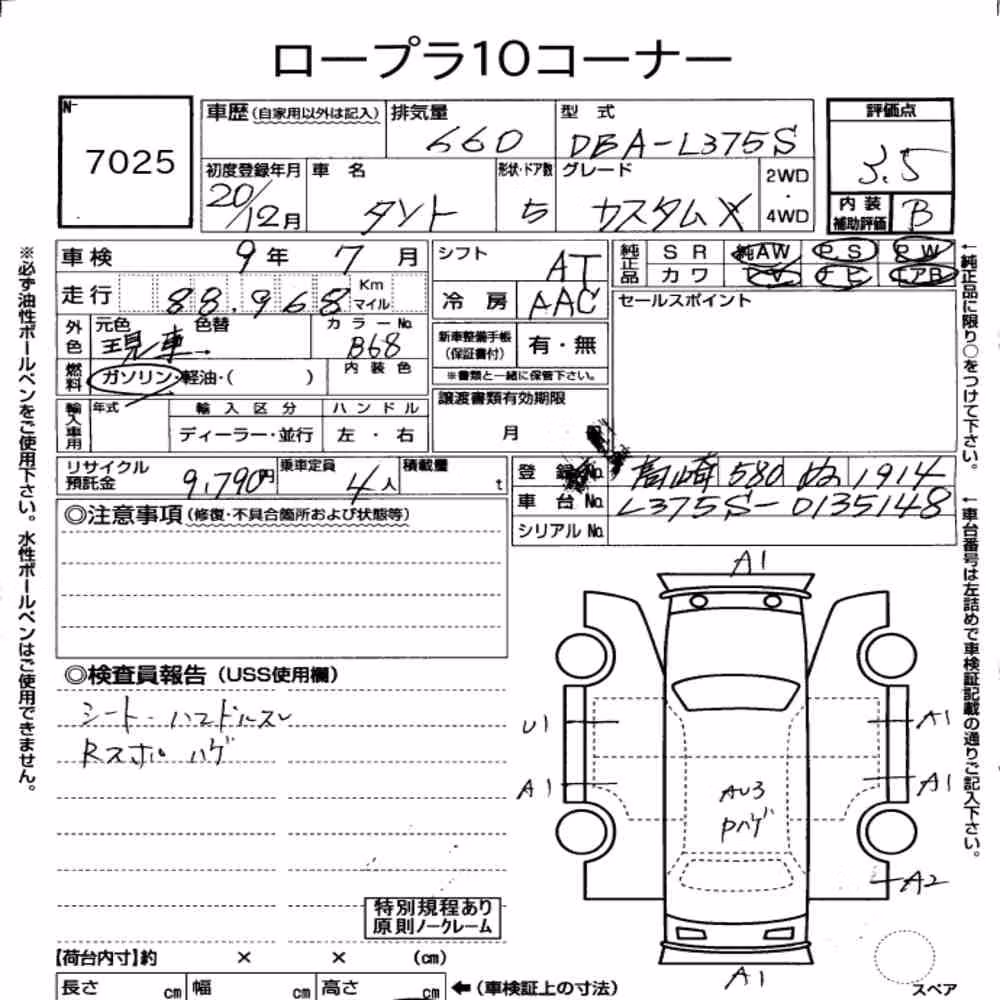 ロープラ10コーナー
N-
7025
車歴(自家用以外は記入)
排気量
660
型 式
DBA-L375S
評価点
3.5
初度登録年月
20/12月
車 名
タント
形状・ドア数
5
グレード
カスタムX
2WD
・
4WD
内 装
補助評価
B
車検 9年 7月
シフト
AT
純正品
S R 純AW P.S P.W
カワ TV ナビ エアB
走行 88.968 Km
マイル
冷 房
AAC
セールスポイント
外色
元色 色替
現車
カラーNo.
B68
新車整備手帳
(保証書付)
有・無
※書類と一緒に保管下さい。
燃料
ガソリン・軽油・( )
内 装 色
輸入車用
年式
輸 入 区 分
ハ ン ド ル
ディーラー・並行
左 ・ 右
譲渡書類有効期限
月
リサイクル
預託金
9,790円
乗車定員
4人
積載量
t
登 録 No.
高崎 580 ぬ 1914
車 台 No.
L375S-0135148
シリアル No.
◎注意事項(修復・不具合箇所および状態等)
◎検査員報告(USS使用欄)
シート・ハンドルスレ
Rスポ ハゲ
特別規程あり
原則ノークレーム
A1
U1
A1
A1
A1
AU3
Pハゲ
A2
A1
スペア
【荷台内寸】約 × × (cm)
長さ cm 幅 cm 高さ cm
←(車検証上の寸法)
※必ず油性ボールペンをご使用下さい。水性ボールペンはご使用できません。
←純正品に限り○をつけて下さい。
←車台番号は左詰めで車検証記載の通りご記入下さい。